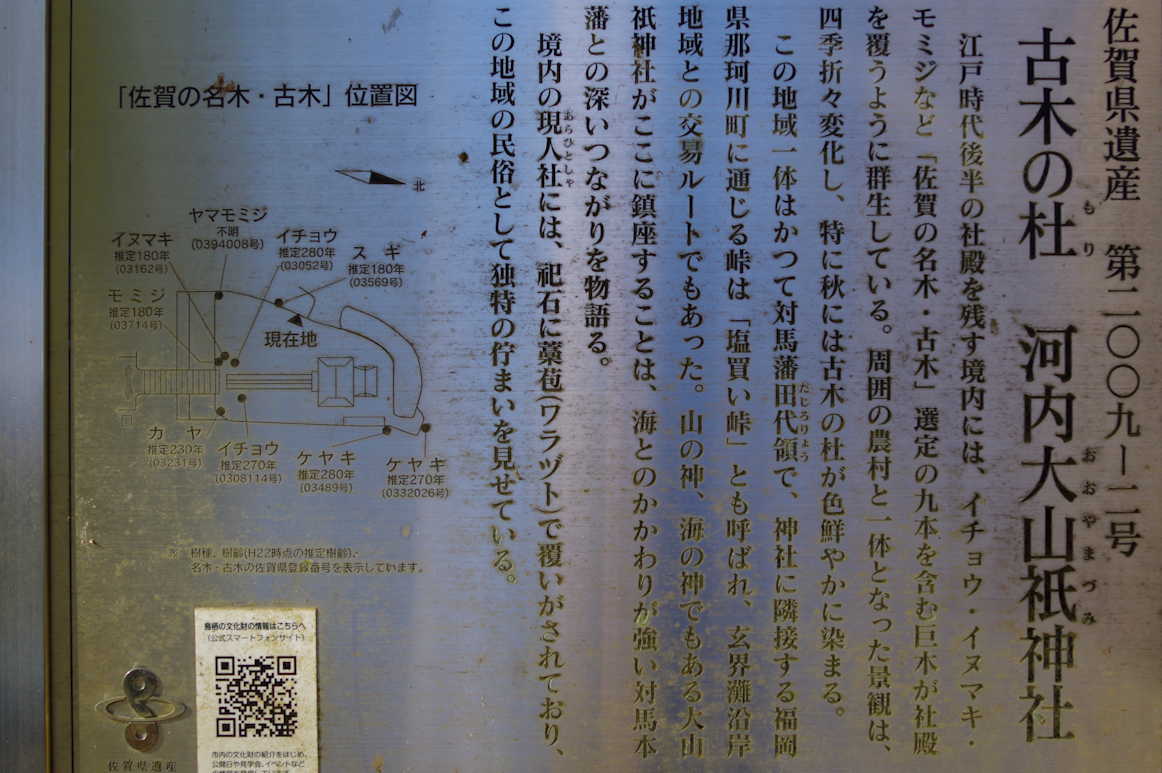 佐賀県遺産　第二〇〇九―一二号
古木の杜　河内大山祇神社
もり
おおやまづみ
江戸時代後半の社殿を残す境内には、イチョウ・イヌマキ・
モミジなど「佐賀の名木・古木」選定の九本を含む巨木が社殿
を覆うように群生している。周囲の農村と一体となった景観は、
四季折々変化し、特に秋には古木の杜が色鮮やかに染まる。
この地域一体はかつて対馬藩田代領で、神社に隣接する福岡
だじろりょう
県那珂川町に通じる峠は「塩買い峠」とも呼ばれ、玄界灘沿岸
地域との交易ルートでもあった。山の神、海の神でもある大山
祇神社がここに鎮座することは、海とのかかわりが強い対馬本
藩との深いつながりを物語る。
境内の現人社には、祀石に藁苞(ワラヅト)で覆いがされており、
あらひとしゃ
この地域の民俗として独特の佇まいを見せている。
「佐賀の名木・古木」位置図
北
ヤマモミジ
不明
(0394008号)
イヌマキ
推定180年
(03162号)
イチョウ
推定280年
(03052号)
スギ
推定180年
(03569号)
モミジ
推定180年
(03714号)
現在地
カヤ
推定230年
(03231号)
イチョウ
推定270年
(0308114号)
ケヤキ
推定280年
(03489号)
ケヤキ
推定270年
(0332026号)
※ 樹種、樹齢(H22時点の推定樹齢)、
名木・古木の佐賀県登録番号を表示しています。
鳥栖の文化財の情報はこちらへ
(公式スマートフォンサイト)
市内の文化財の紹介をはじめ、
公開日や見学会、イベントなど
佐賀県遺産